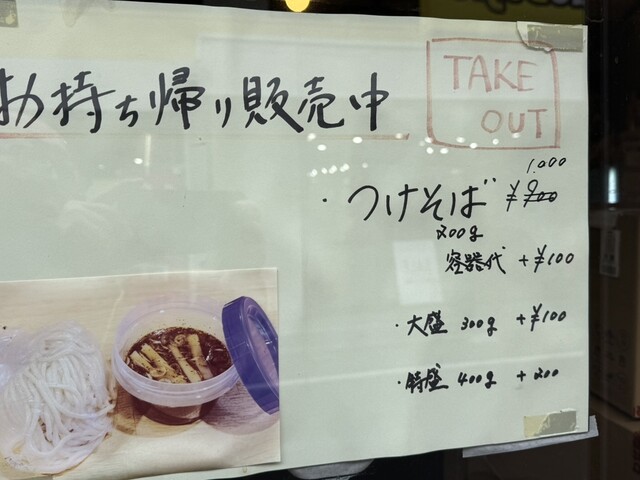 持ち帰り販売中
TAKE
OUT
1.000
・つけそば ¥900
200g
容器代 +¥100
・大盛 300g +¥100
・特盛 400g +200